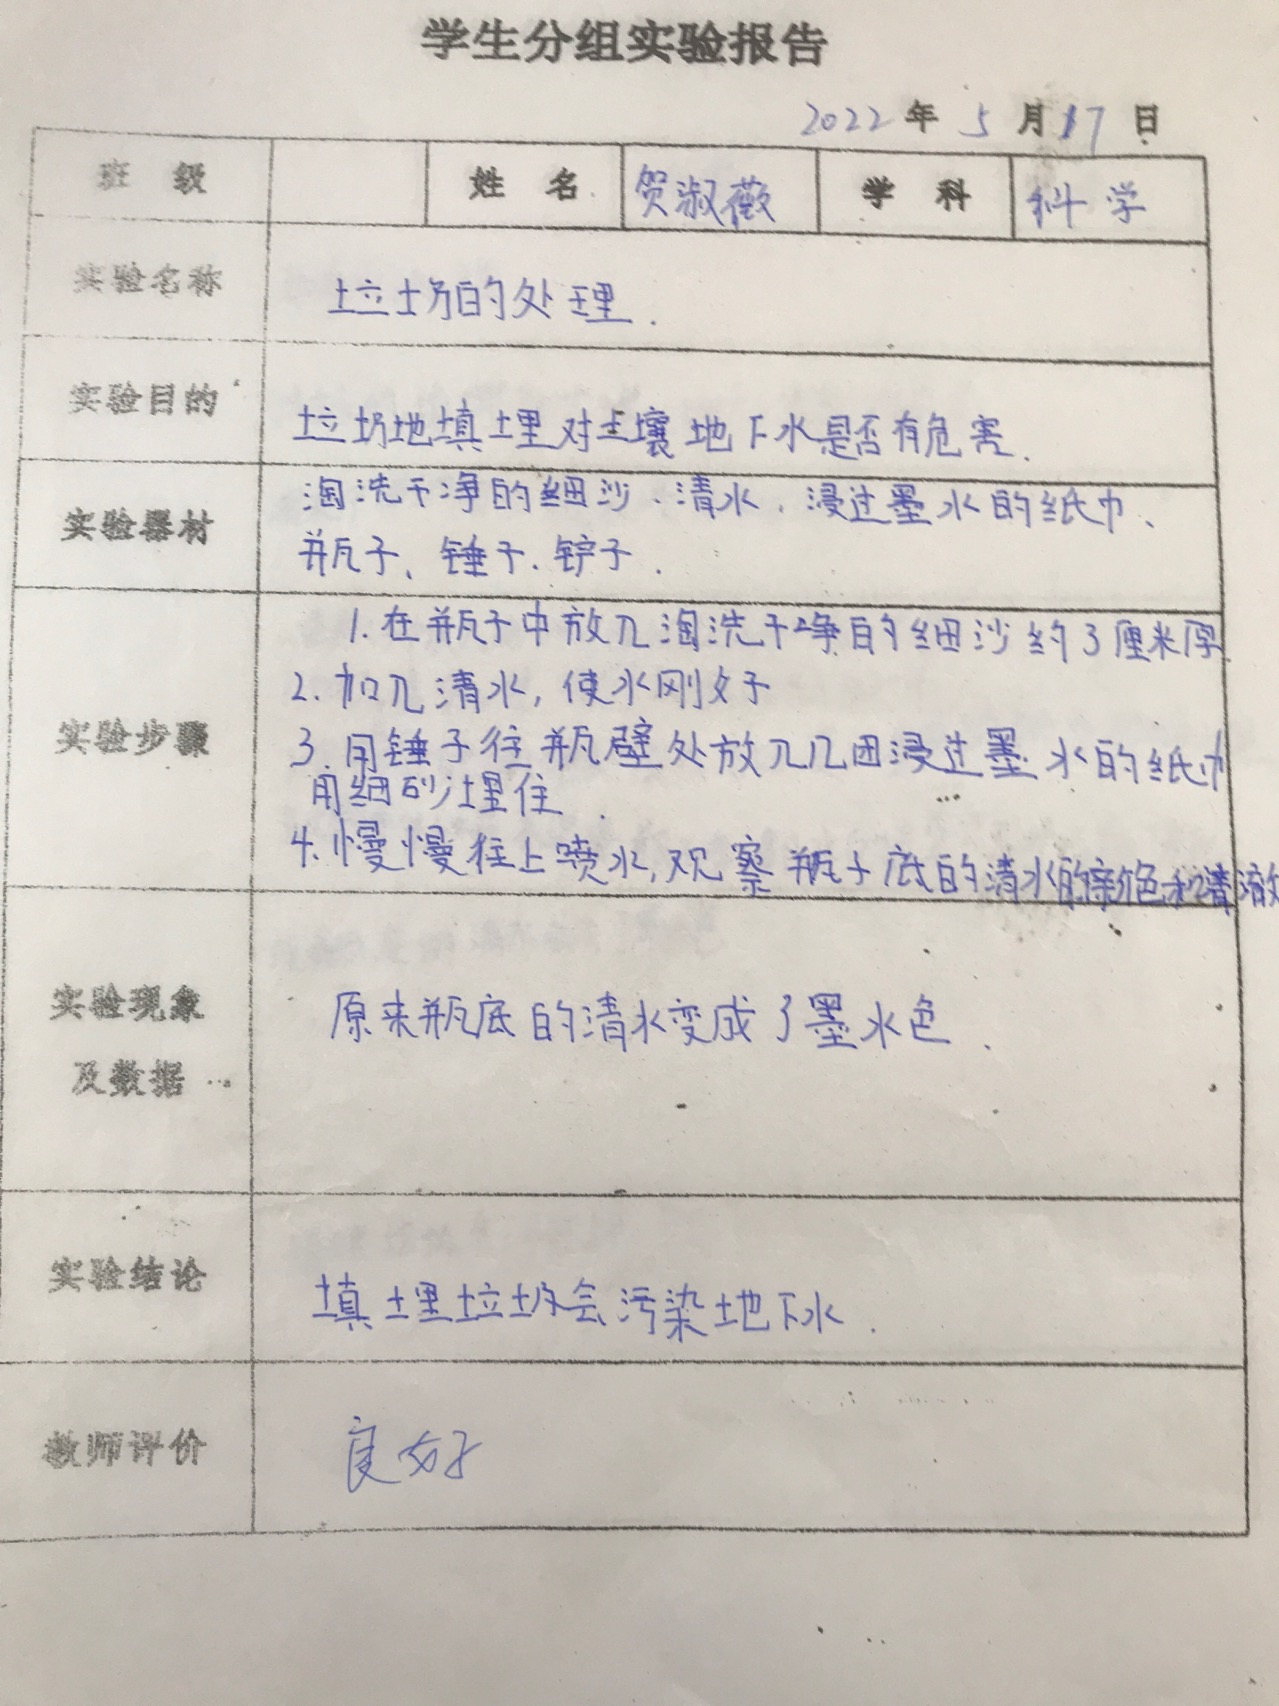 学生分组实验报告
2022年5月17日
班级 姓名 贺淑薇 学科 科学
实验名称 垃圾的处理.
实验目的 垃圾地填埋对土壤地下水是否有危害.
实验器材 淘洗干净的细沙、清水、浸过墨水的纸巾、
瓶子、锤子、铲子.
实验步骤
1.在瓶子中放入淘洗干净的细沙约3厘米厚.
2.加入清水,使水刚好
3.用锤子往瓶壁处放入几团浸过墨水的纸巾
用细砂埋住.
4.慢慢往上喷水,观察瓶子底的清水的颜色和清澈
实验现象
及数据
原来瓶底的清水变成了墨水色.
实验结论 填埋垃圾会污染地下水.
教师评价 良好